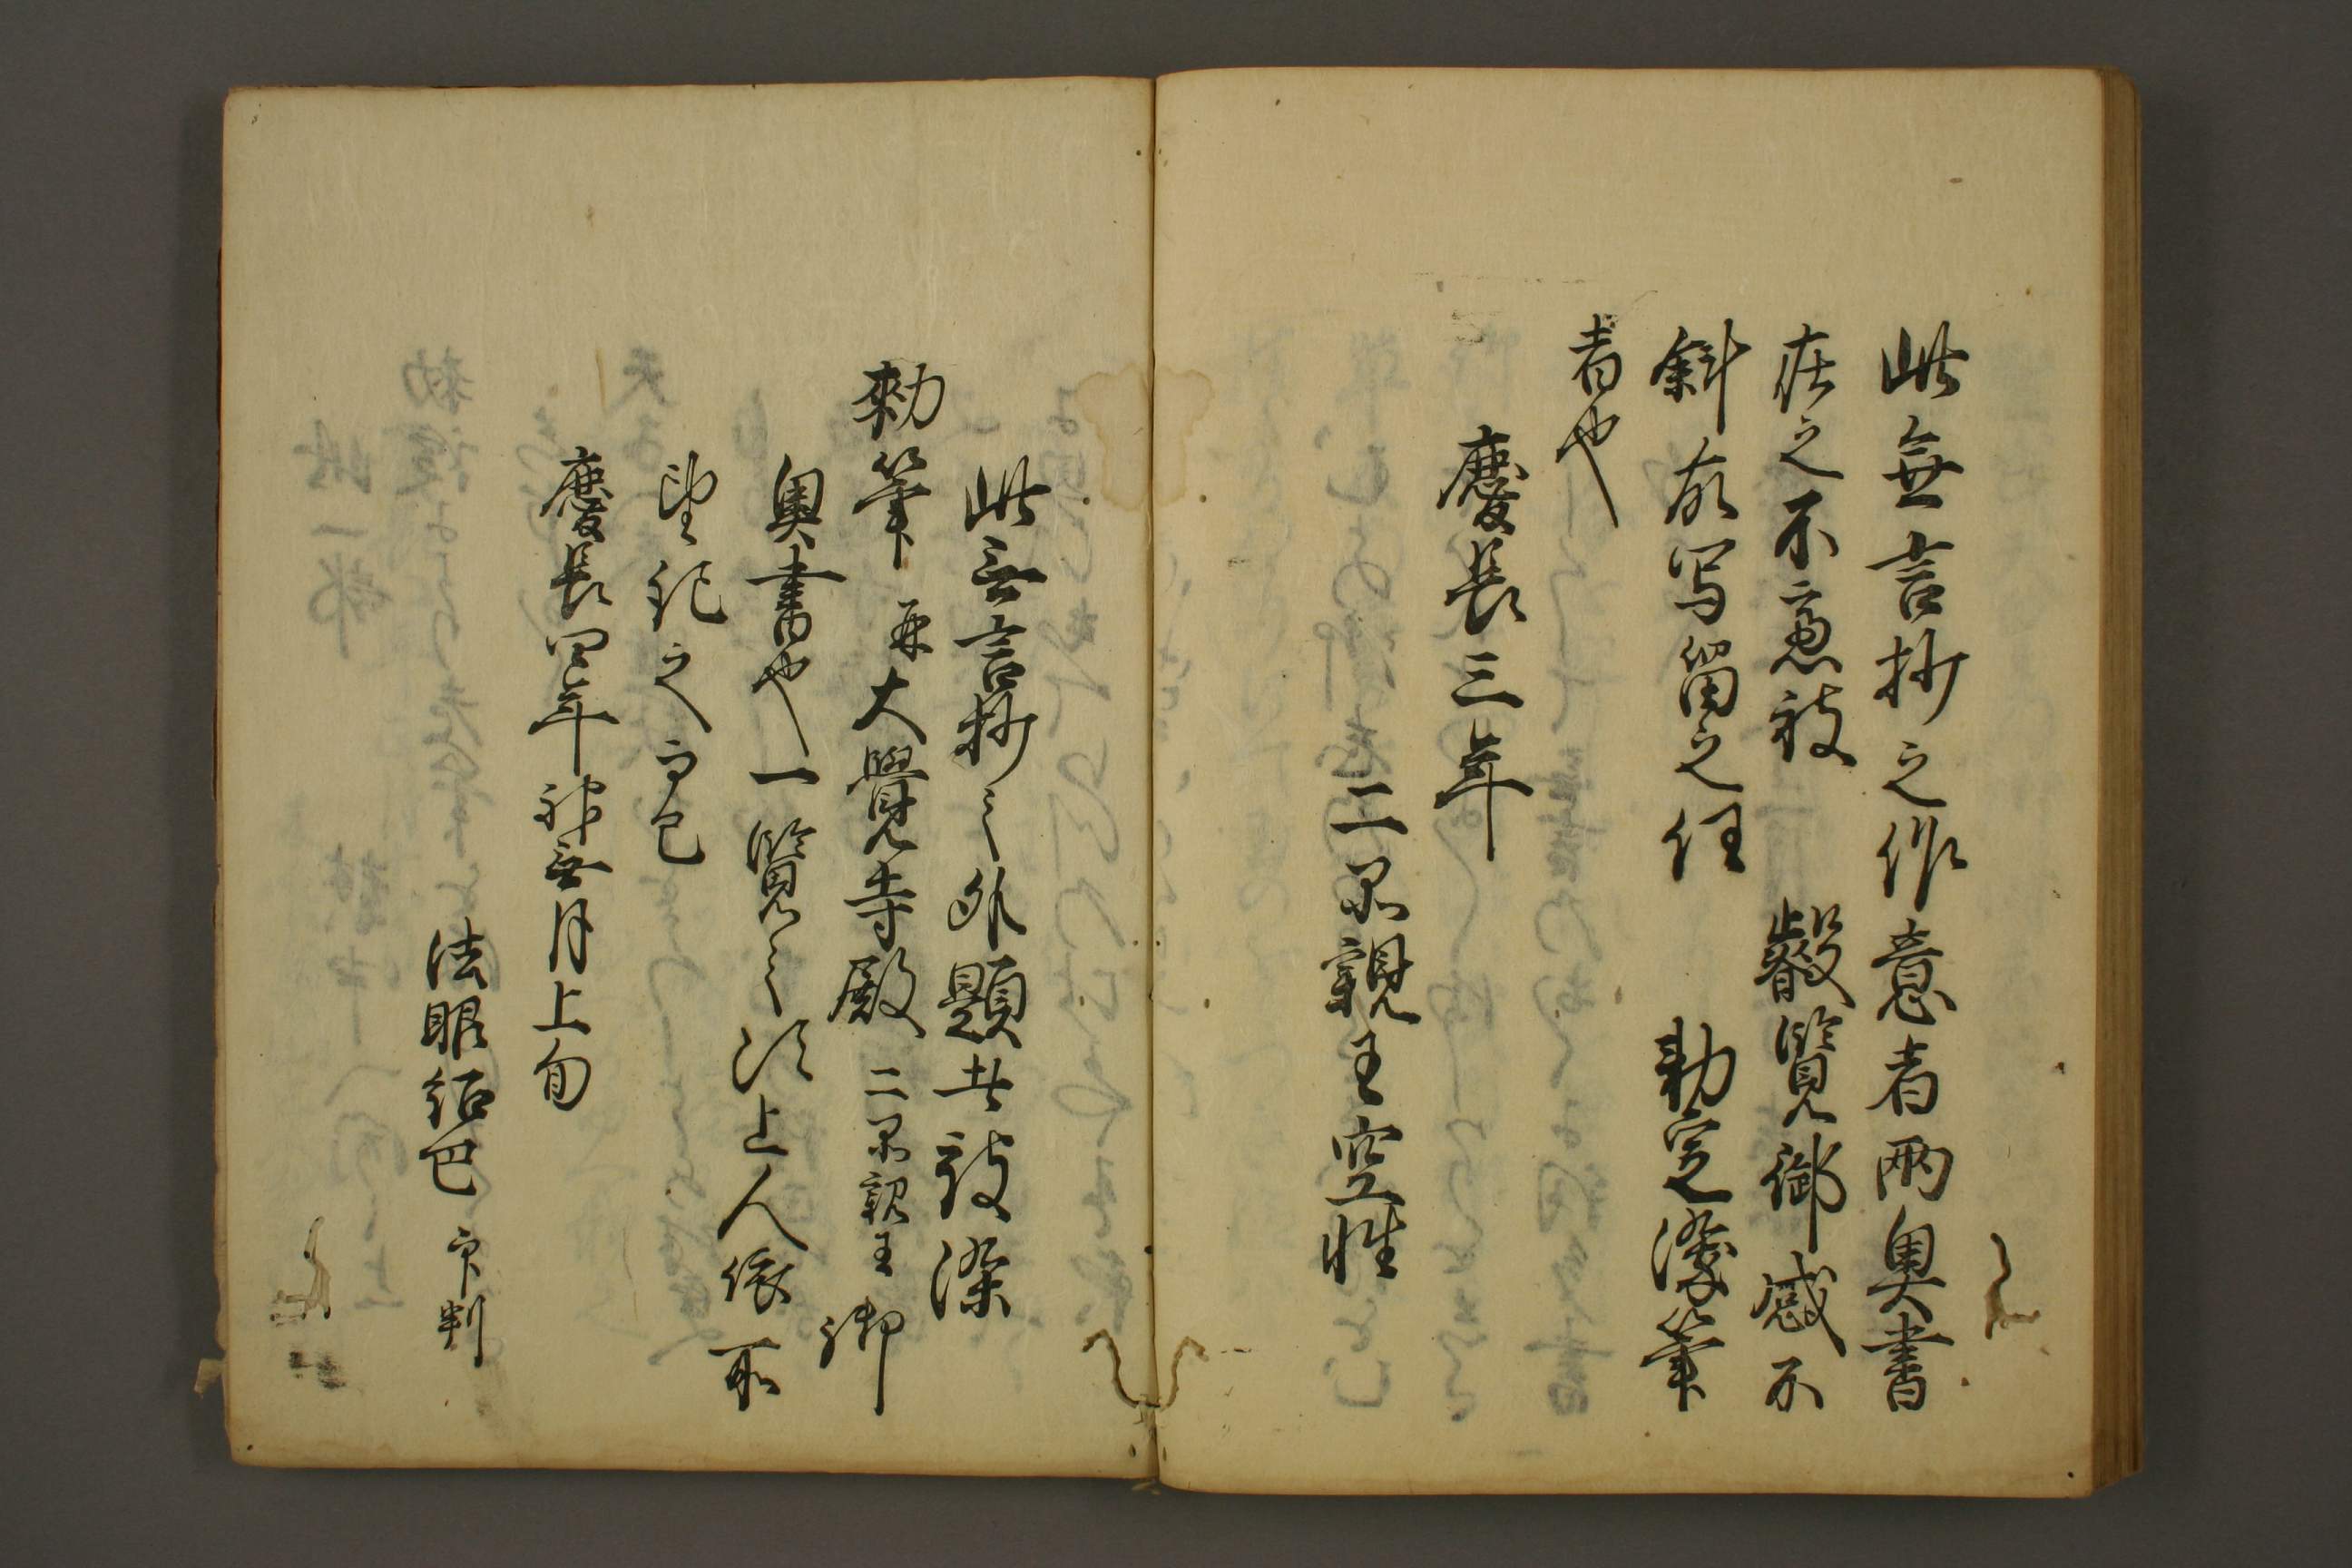 此無言抄之作意者兩奥書
在之不慮被　叡覧御感不
斜故写留之任　勅定染筆
者也
慶長三年
二品親王空性
此無言抄之外題共被染
勅筆并大覺寺殿二品親王御
奥書也一覧之次上人依所
望記之而已
慶長四年神無月上旬
法眼紹巴 在判